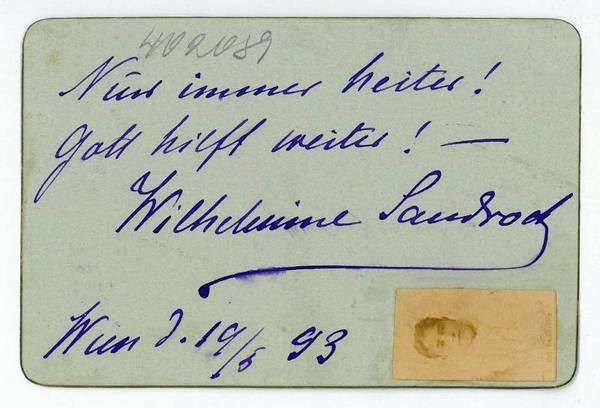 402089
Nur immer heiter!
Gott hilft weiter! —
Wilhelmine Sandrock
Wien d. 19/5 93